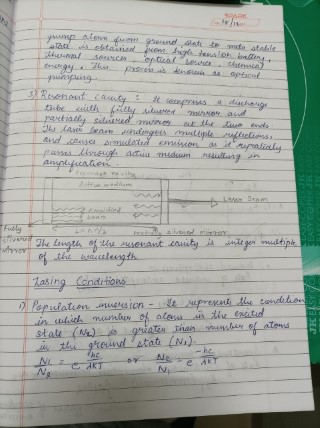 pump atom from ground state to meta stable
state is obtained from high tension battery,
thermal sources, optical source, chemical
energy. This process is known as optical
pumping.
3) Resonant cavity : It comprises a discharge
tube with fully silvered mirror and
partially silvered mirror at the two ends
The laser beam undergoes multiple reflections,
and causes simulated emission as it repeatedly
passes through active medium resulting in
amplification.
Active medium
Laser beam
Fully
silvered
mirror
silvered mirror
The length of the resonant cavity is integer multiple
of the wavelength
Lasing Conditions
1) Population inversion - It represents the condition
in which number of atoms in the excited
state (N2) is greater than number of atoms
in the ground state (N1).
N1/N2 = e^(hc/λKT) or N2/N1 = e^(-hc/λKT)